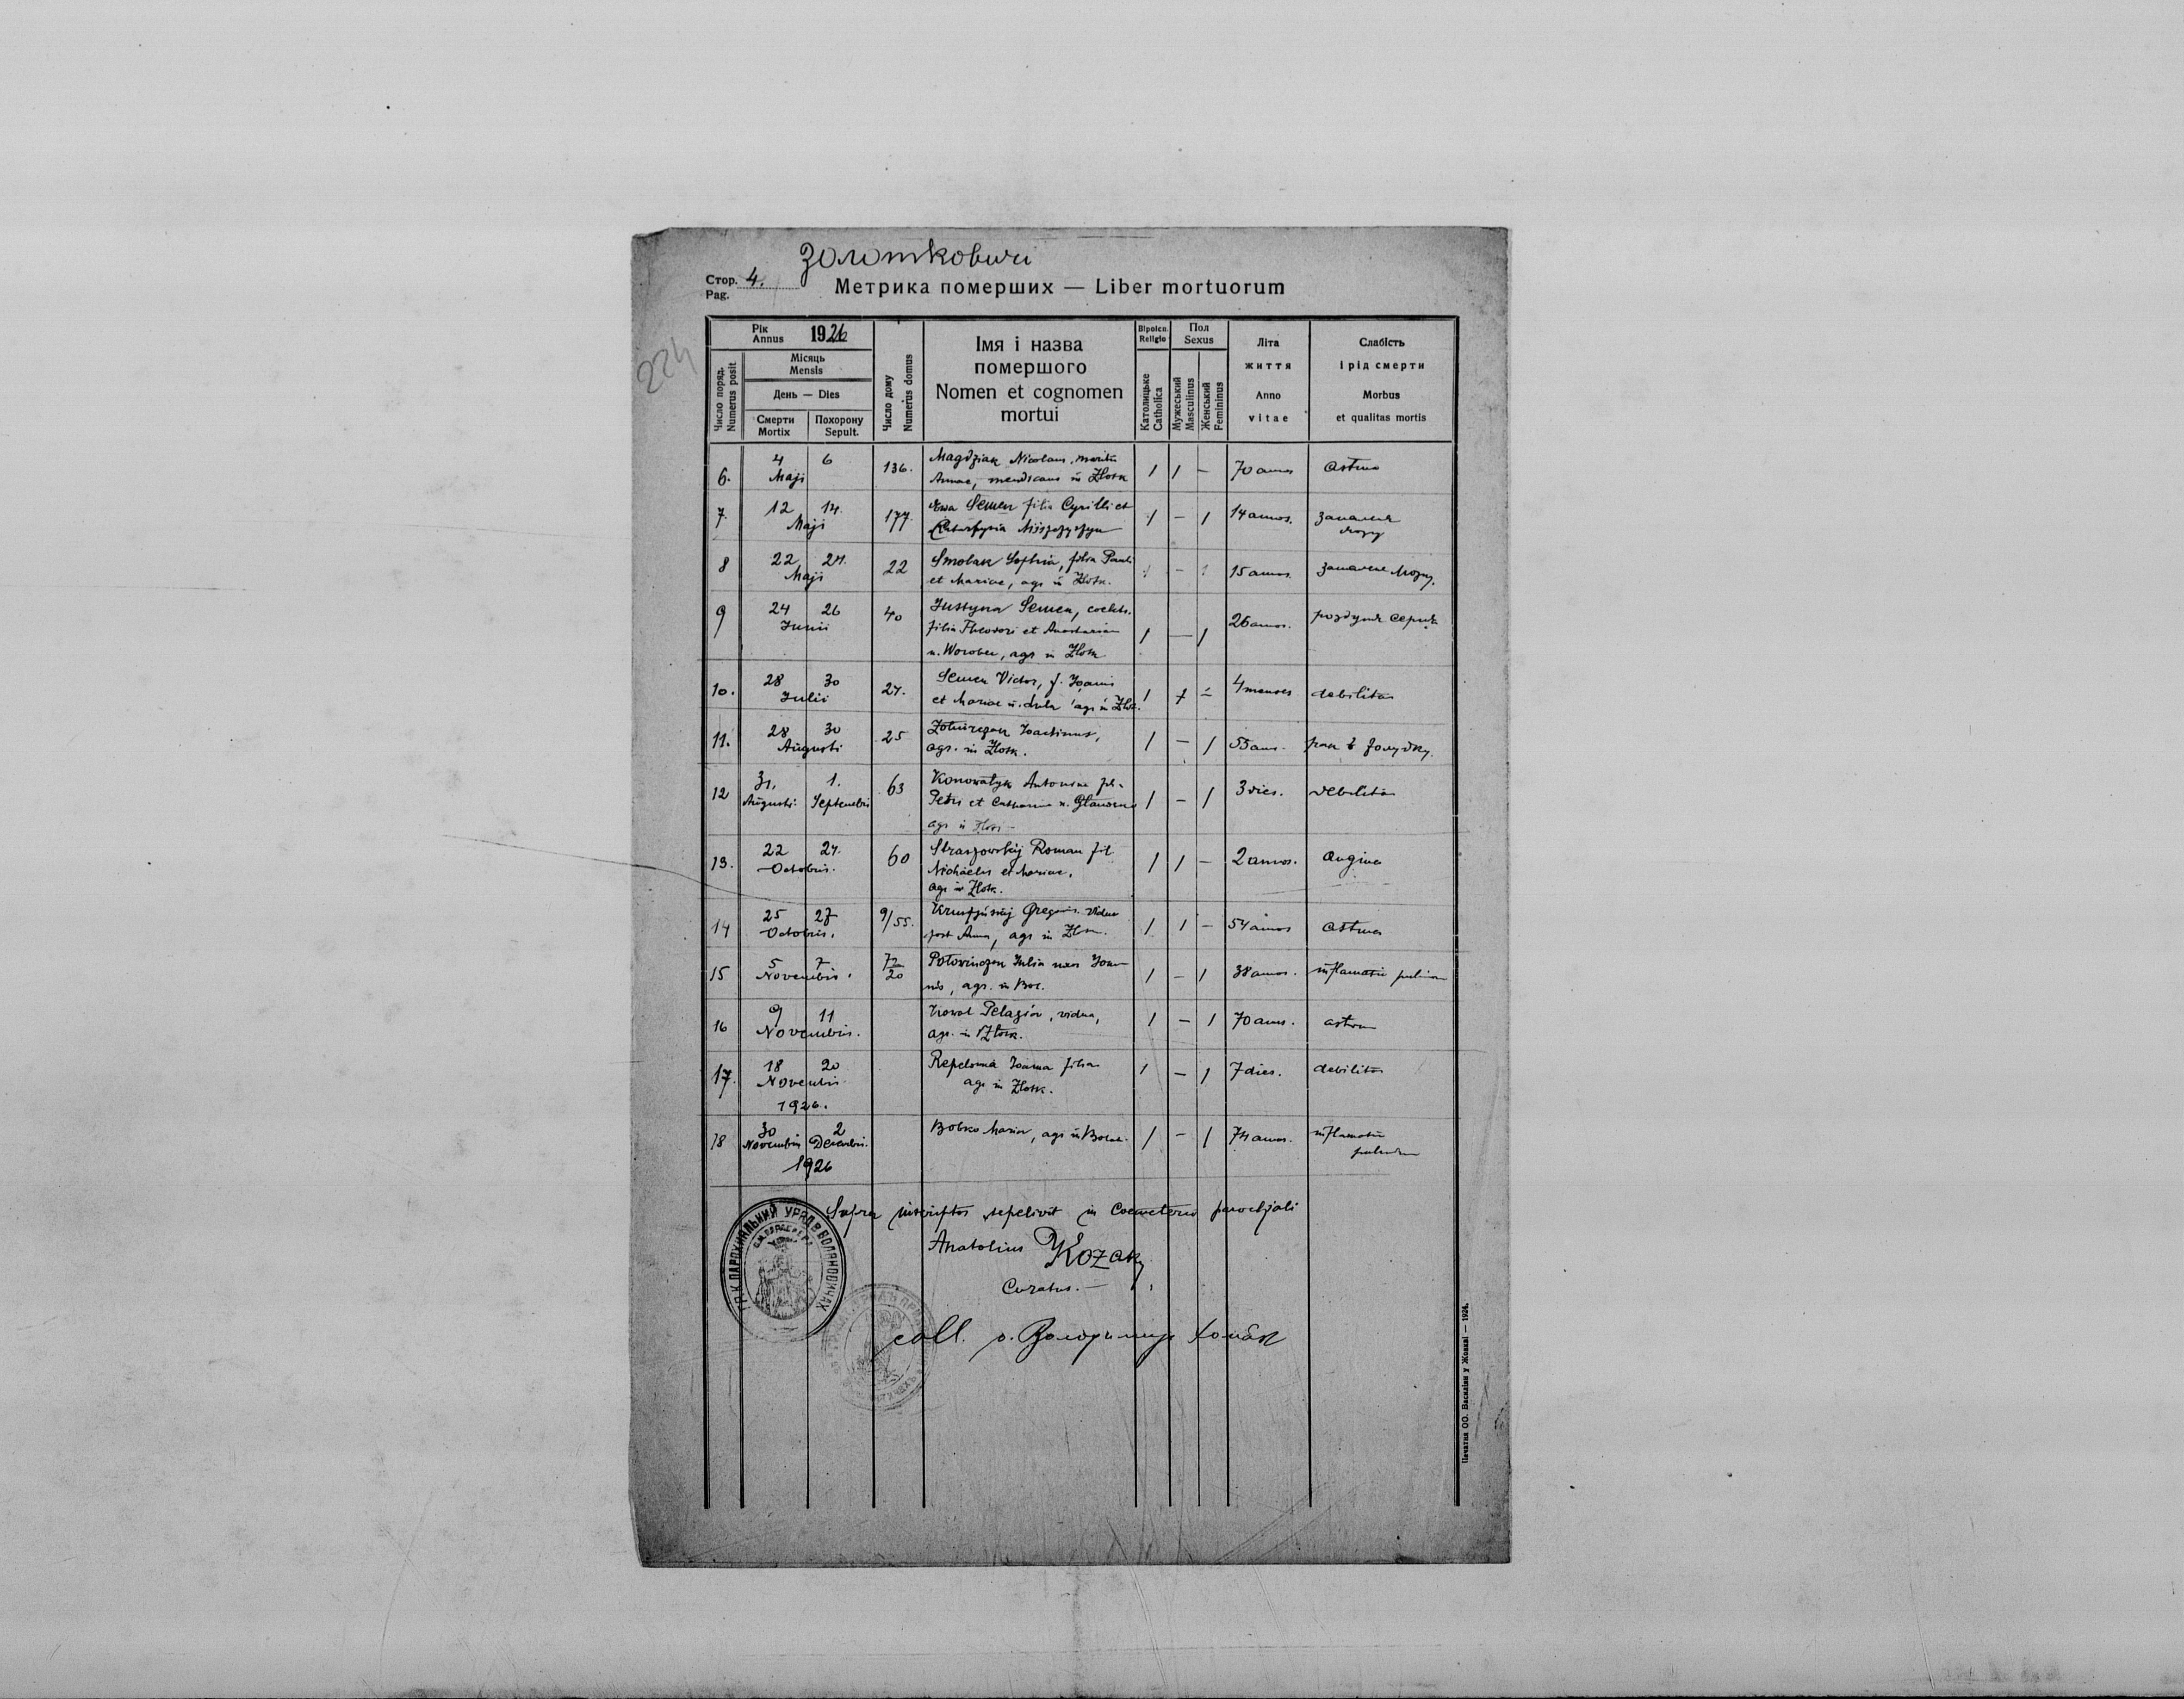 Золотковичі
Стор. 4.
Pag.
Метрика померших — Liber mortuorum
224
Рік
Annus 1926
Місяць
Mensis
День — Dies
Смерти
Mortix
Похорону
Sepult.
Число поряд.
Numerus posit
Число дому
Numerus domus
Імя і назва
помершого
Nomen et cognomen
mortui
Віроісп.
Religio
Католицьке
Catholica
Пол
Sexus
Мужеський
Masculinus
Женський
Femininus
Літа
життя
Anno
vitae
Слабість
і рід смерти
Morbus
et qualitas mortis
6. 4 6 Maji 136. Magdziak Nicolaus, maritus
Annae, mendicans in Złotk 1 1 — 70 annos astma
7. 12 14. Maji 177. Ewa Semen filia Cyrilli et
1 — 1 14 annos. запаленя
мозгу
8 22 24. Maji 22 Smolak Sophia, filia Pauli
et Mariae, agr. in Złotk. 1 — 1 15 annos. запалене мозгу.
9 24 26 Junii 40 Justyna Semen, coelebs.
filia Theodori et Anastasiae
n. Worobec, agr. in Złotk 1 — 1 26 annos. серця
10. 28 30 Julii 24. Semen Victor, f. Joannis
et Mariae n. agr. in Złotk. 1 1 — 4 menses debilitas
11. 28 30 Augusti 25 Joachimus,
agr. in Złotk. 1 — 1 55 ann. рак в жолудку.
12 31. Augusti 1. Septembris 63 Antonina fil.
Petri et Catharinae n.
agr. in Złotk 1 — 1 3 dies. debilitas
13. 22 24. Octobris. 60 Straszowskij Roman fil.
Michaelis et Mariae,
agr. in Złotk. 1 1 — 2 annos. angina
14 25 27 Octobris. 9/55. Gregorius viduus
post Anna, agr. in Złotk. 1 1 — 54 annos astma
15 5 7 Novembris. 72/20 Julia uxor Joan
nis, agr. in Boł. 1 — 1 38 annos. inflamatio pulmon
16 9 11 Novembris. Kowal Pelagia, vidua,
agr. in Złotk. 1 — 1 70 ann. astma
17. 18 20 Novembris
1926. Joanna filia
agr. in Złotk. 1 — 1 7 dies. debilitas
18 30 Novembris 2 Decembris.
1926 Bobko Maria, agr. in Bołan. 1 — 1 74 annos. inflamatio
Supra inscriptos sepelivit in Coemeterio parochjali
Anatolius Kozak
Curatus.—
coll. о. Володимир
ГР. К. ПАРОХІЯЛЬНИЙ УРЯД В БОЛЯНОВИЧАХ
Печатня ОО. Василіян у Жовкві — 1924.